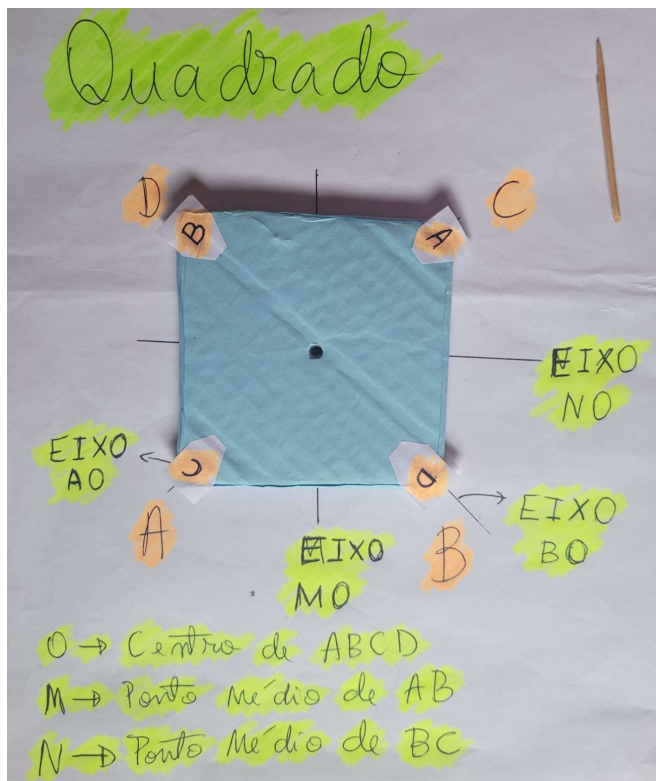 Quadrado
D
C
B
A
EIXO
NO
EIXO
AO
C
D
EIXO
BO
A
B
EIXO
MO
O → Centro de ABCD
M → Ponto Médio de AB
N → Ponto Médio de BC